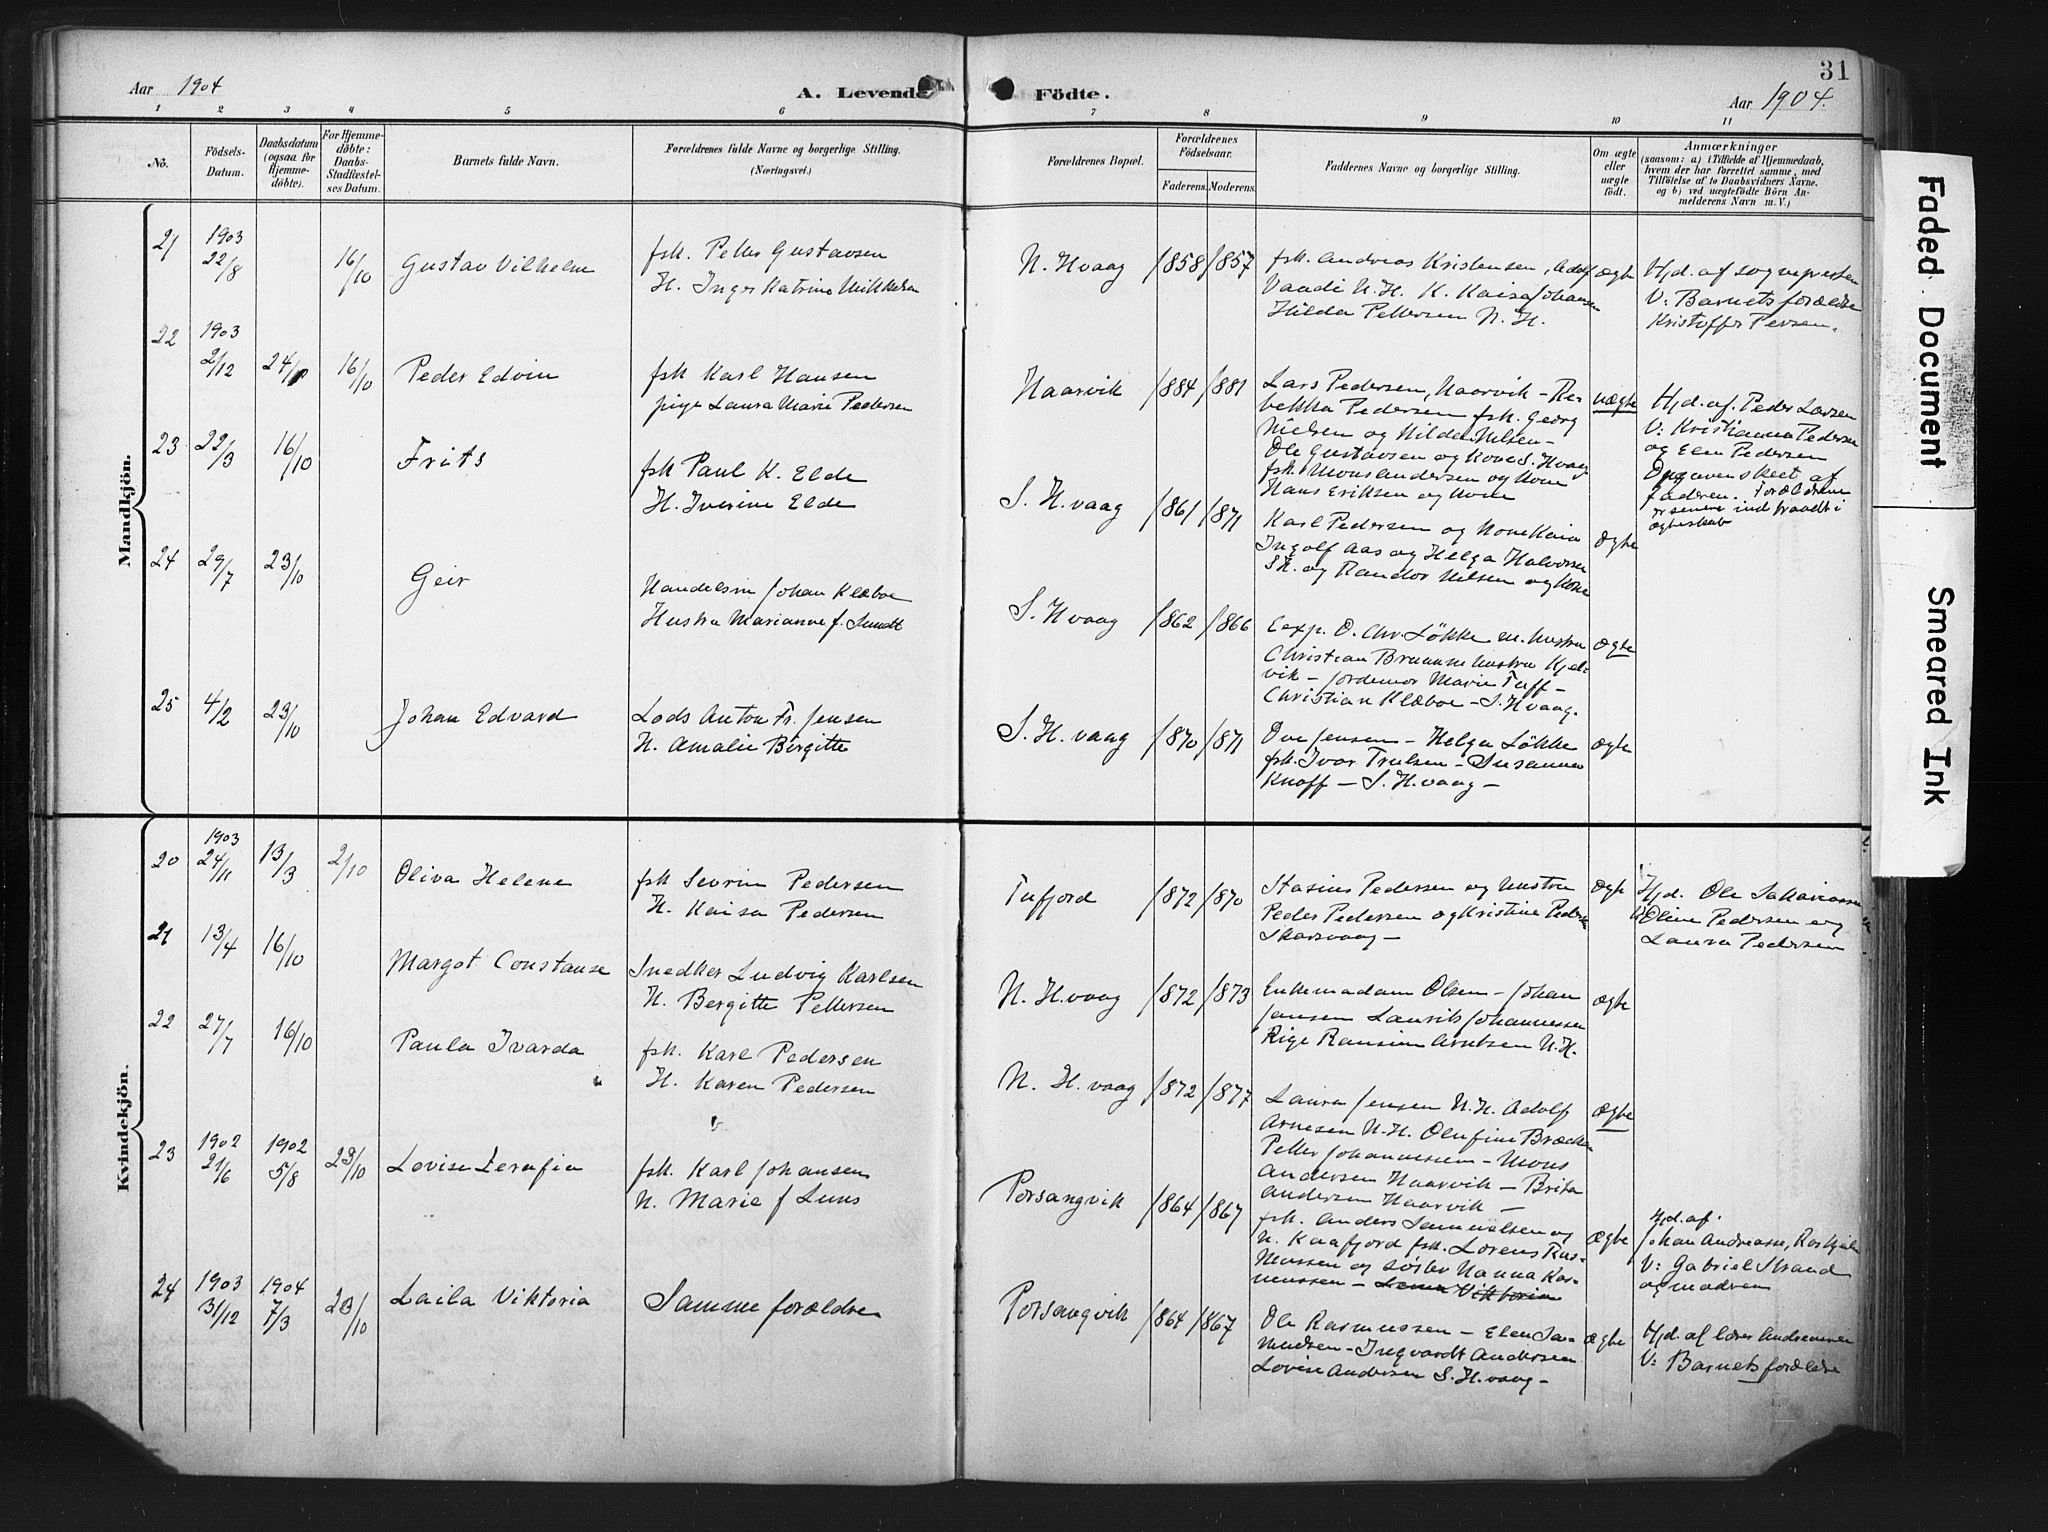 31
Aar 1904
A. Levende
Födte.
Aar 1904.
1 2 3 4 5 6 7 8 9 10 11
No.
Födsels-Datum.
Daabsdatum (ogsaa for Hjemme-döbte).
For Hjemme-döbte: Daabs-Stadfæstel-ses Datum.
Barnets fulde Navn.
Forældrenes fulde Navne og borgerlige Stilling.
(Næringsvei.)
Forældrenes Bopæl.
Forældrenes Födselsaar.
Faderens. Moderens.
Faddernes Navne og borgerlige Stilling.
Om ægte eller uægte födt.
Anmærkninger
(saasom: a) i Tilfælde af Hjemmedaab,
hvem der har forrettet samme, med
Tilföielse af to Daabsvidners Navne.
og b) ved uægtefödte Börn An-
melderens Navn m. V.)
Mandkjön.
21 1903 22/8 16/10 Gustav Vilhelm
fsk. Petter Gustavsen
H. Inger Katrine Mikkelsen
N. Hvaag 1858 1857
fsk. Andreas Kristensen, Adolf
Vaadi N.H. K. Kaisa Johansen
Hilda Pettersen N.H.
ægte
Hjd. af sognepresten
V: Barnets forældre
Kristoffer Persen.
22 1903 2/12 24/10 16/10 Peder Edvin
fsk Karl Hansen
pige Laura Marie Pedersen
Haarvik 1884 1881
Lars Pedersen, Haarvik - Re-
bekka Pedersen fsk. Georg
Nielsen og Hilda Nilsen -
Ole Gustavsen og Kone S. Hvaag
fsk. Mons Andersen og Kone
Hans Eriksen og Kone
uægte
Hjd. af. Peder Larsen
V: Kristianna Pedersen
og Elen Pedersen
Opgaven skeet af
faderen. Forældrene
er senere indtraadt i
ægteskab
23 22/3 16/10 Frits
fsk Paul K. Elde
H. Iverine Elde
S. H.vaag 1861 1871
Karl Pedersen og Kone Kaia
Ingolf Aas og Helga Halvorsen
Sk. og Randor Nilsen og Kone
ægte
24 29/7 23/10 Geir
Handelsm Johan Klæboe
Hustru Marianne f. Sundt
S. Hvaag 1862 1866
Cexp. O. Chr. Løkke m. hustru
Christian Bruun m hustru Kjel-
vik - Jordemor Marie Tuff -
Christian Klæboe - S. Hvaag.
ægte
25 4/2 23/10 Johan Edvard
Lods Anton Fr. Jensen
H. Amalie Birgitte
S. H. vaag 1870 1871
Ove Jensen - Helga Løkke
fsk. Ivar Trulsen - Susanna
Knoff - S. H.vaag -
ægte
Kvindekjön.
20 1903 24/11 13/3 2/10 Oliva Helene
fsk Sevrin Pedersen
H. Kaisa Pedersen
Tufjord 1872 1870
Stasius Pedersen og hustru
Peder Pedersen og Kristine Peders
Skarsvaag -
ægte
Hjd. Ole Sakariassen
V: Oline Pedersen og
Laura Pedersen
21 13/4 16/10 Margot Constanse
Snedker Ludvig Karlsen
H. Bergitte Pettersen
N. H.vaag 1872 1873
Enkemadam Olsen - Johan
Jensen Laurits Johannessen
Pige Ransine Arntsen N.H.
ægte
22 27/7 16/10 Paula Ivarda
fsk. Karl Pedersen
H. Karen Pedersen
N. H. vaag 1872 1877
Laura Jensen N.H. Adolf
Arnesen N.H. Olufine Brækken
Petter Johannessen - Mons
Andersen Haarvik - Brita
Andersen Haarvik -
ægte
23 1902 21/6 1902 5/8 23/10 Lovise Serafia
fsk. Karl Johansen
H. Marie f Luns
Porsangvik 1864 1867
fsk. Anders Samuelsen og
H. Kaafjord fsk. Lorens Ras-
mussen og søster Hanna Ras-
mussen - Lema Viktoria
ægte
Hjd. af.
Johan Andreasse,
V: Gabriel Strand
og madren
24 1903 31/12 1904 7/3 23/10 Laila Viktoria
Samme forældre
Porsangvik 1864 1867
Ole Rasmussen - Elen Sa-
muelsen - Ingvardt Andersen
Lovise Andersen S. H. vaag -
ægte
Hjd. af lærer Andreassen
V: Barnets forældre
Faded Document
Smeared Ink